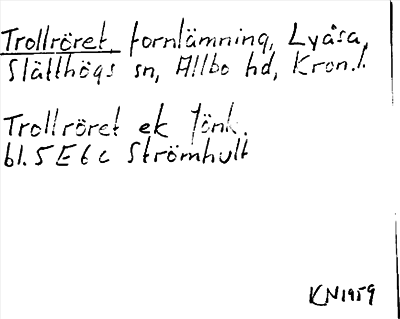 Trollröret, fornlämning, Lyåsa,
Slätthögs sn, Allbo hd, Kron.l.
Trollröret ek Jönk.
bl. 5 E 6 c Strömhult
KN 1959